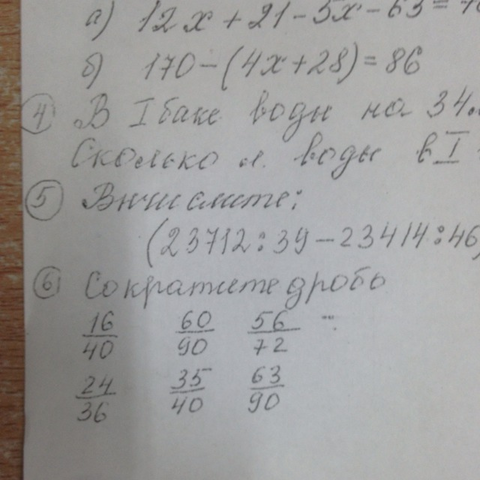 а) 12x + 21 - 5x - 63 =
б) 170 - (4x + 28) = 86
④ В I баке воды на 34
Сколько л. воды в I
⑤ Вычислите:
(23712 : 39 - 23414 : 46)
⑥ Сократите дробь
16/40 60/90 56/72
24/36 35/40 63/90